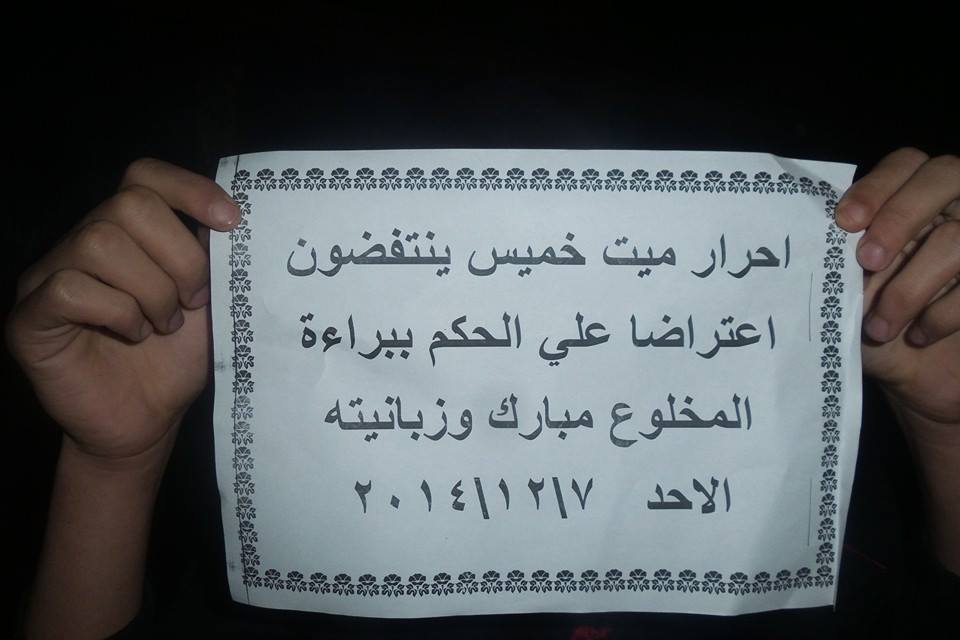 احرار ميت خميس ينتفضون
اعتراضا علي الحكم ببراءة
المخلوع مبارك وزبانيته
الاحد ٧\١٢\٢٠١٤